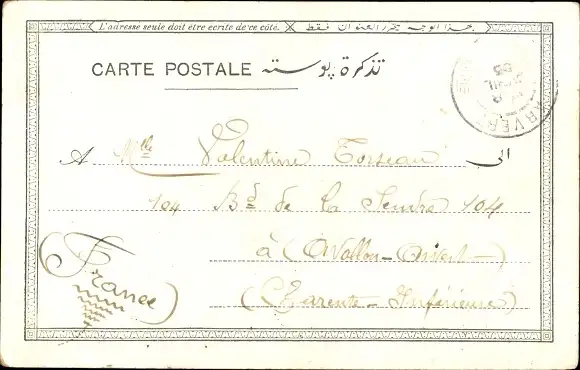 L'adresse seule doit être écrite de ce côté. بهذا الوجه يحرر العنوان فقط
CARTE POSTALE تذكرة بوسته
A Mlle Valentine Torseau الى
104 Bd de la Seudre 104
à (Avallon-Arvert-)
(Charente-Inférieure)
(France)
ARVERT